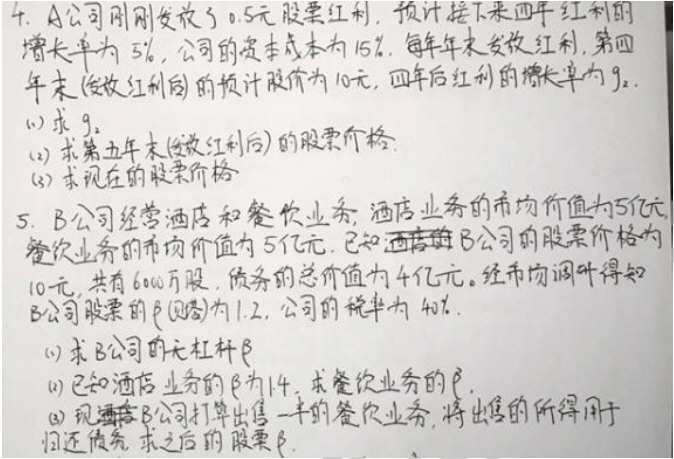 4. A公司刚刚发放了0.5元股票红利，预计接下来四年红利的
增长率为5%，公司的资本成本为15%，每年年末发放红利，第四
年末(发放红利后)的预计股价为10元，四年后红利的增长率为g₂.
(1) 求g₂
(2) 求第五年末(发放红利后)的股票价格.
(3) 求现在的股票价格
5. B公司经营酒店和餐饮业务，酒店业务的市场价值为5亿元，
餐饮业务的市场价值为5亿元. 已知B公司的股票价格为
10元，共有6000万股，债务的总价值为4亿元。经市场调研得知
B公司股票的β(贝塔)为1.2，公司的税率为40%.
(1) 求B公司的无杠杆β
(2) 已知酒店业务的β为1.4，求餐饮业务的β.
(3) 现B公司打算出售一半的餐饮业务，将出售的所得用于
归还债务，求之后的股票β.